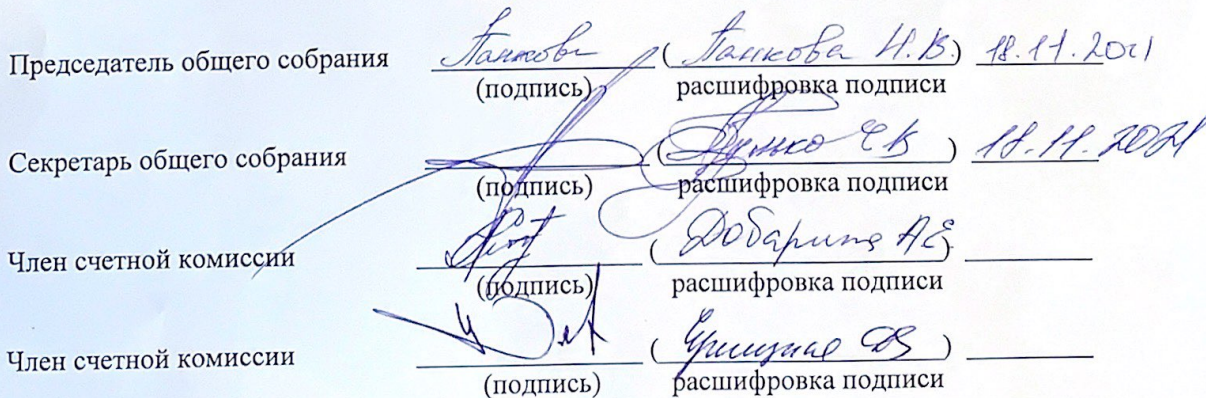 Председатель общего собрания Панкова (Панкова Н.В.) 18.11.2021
(подпись) расшифровка подписи
Секретарь общего собрания ( ) 18.11.2021
(подпись) расшифровка подписи
Член счетной комиссии ( Добарина АЕ )
(подпись) расшифровка подписи
Член счетной комиссии ( )
(подпись) расшифровка подписи